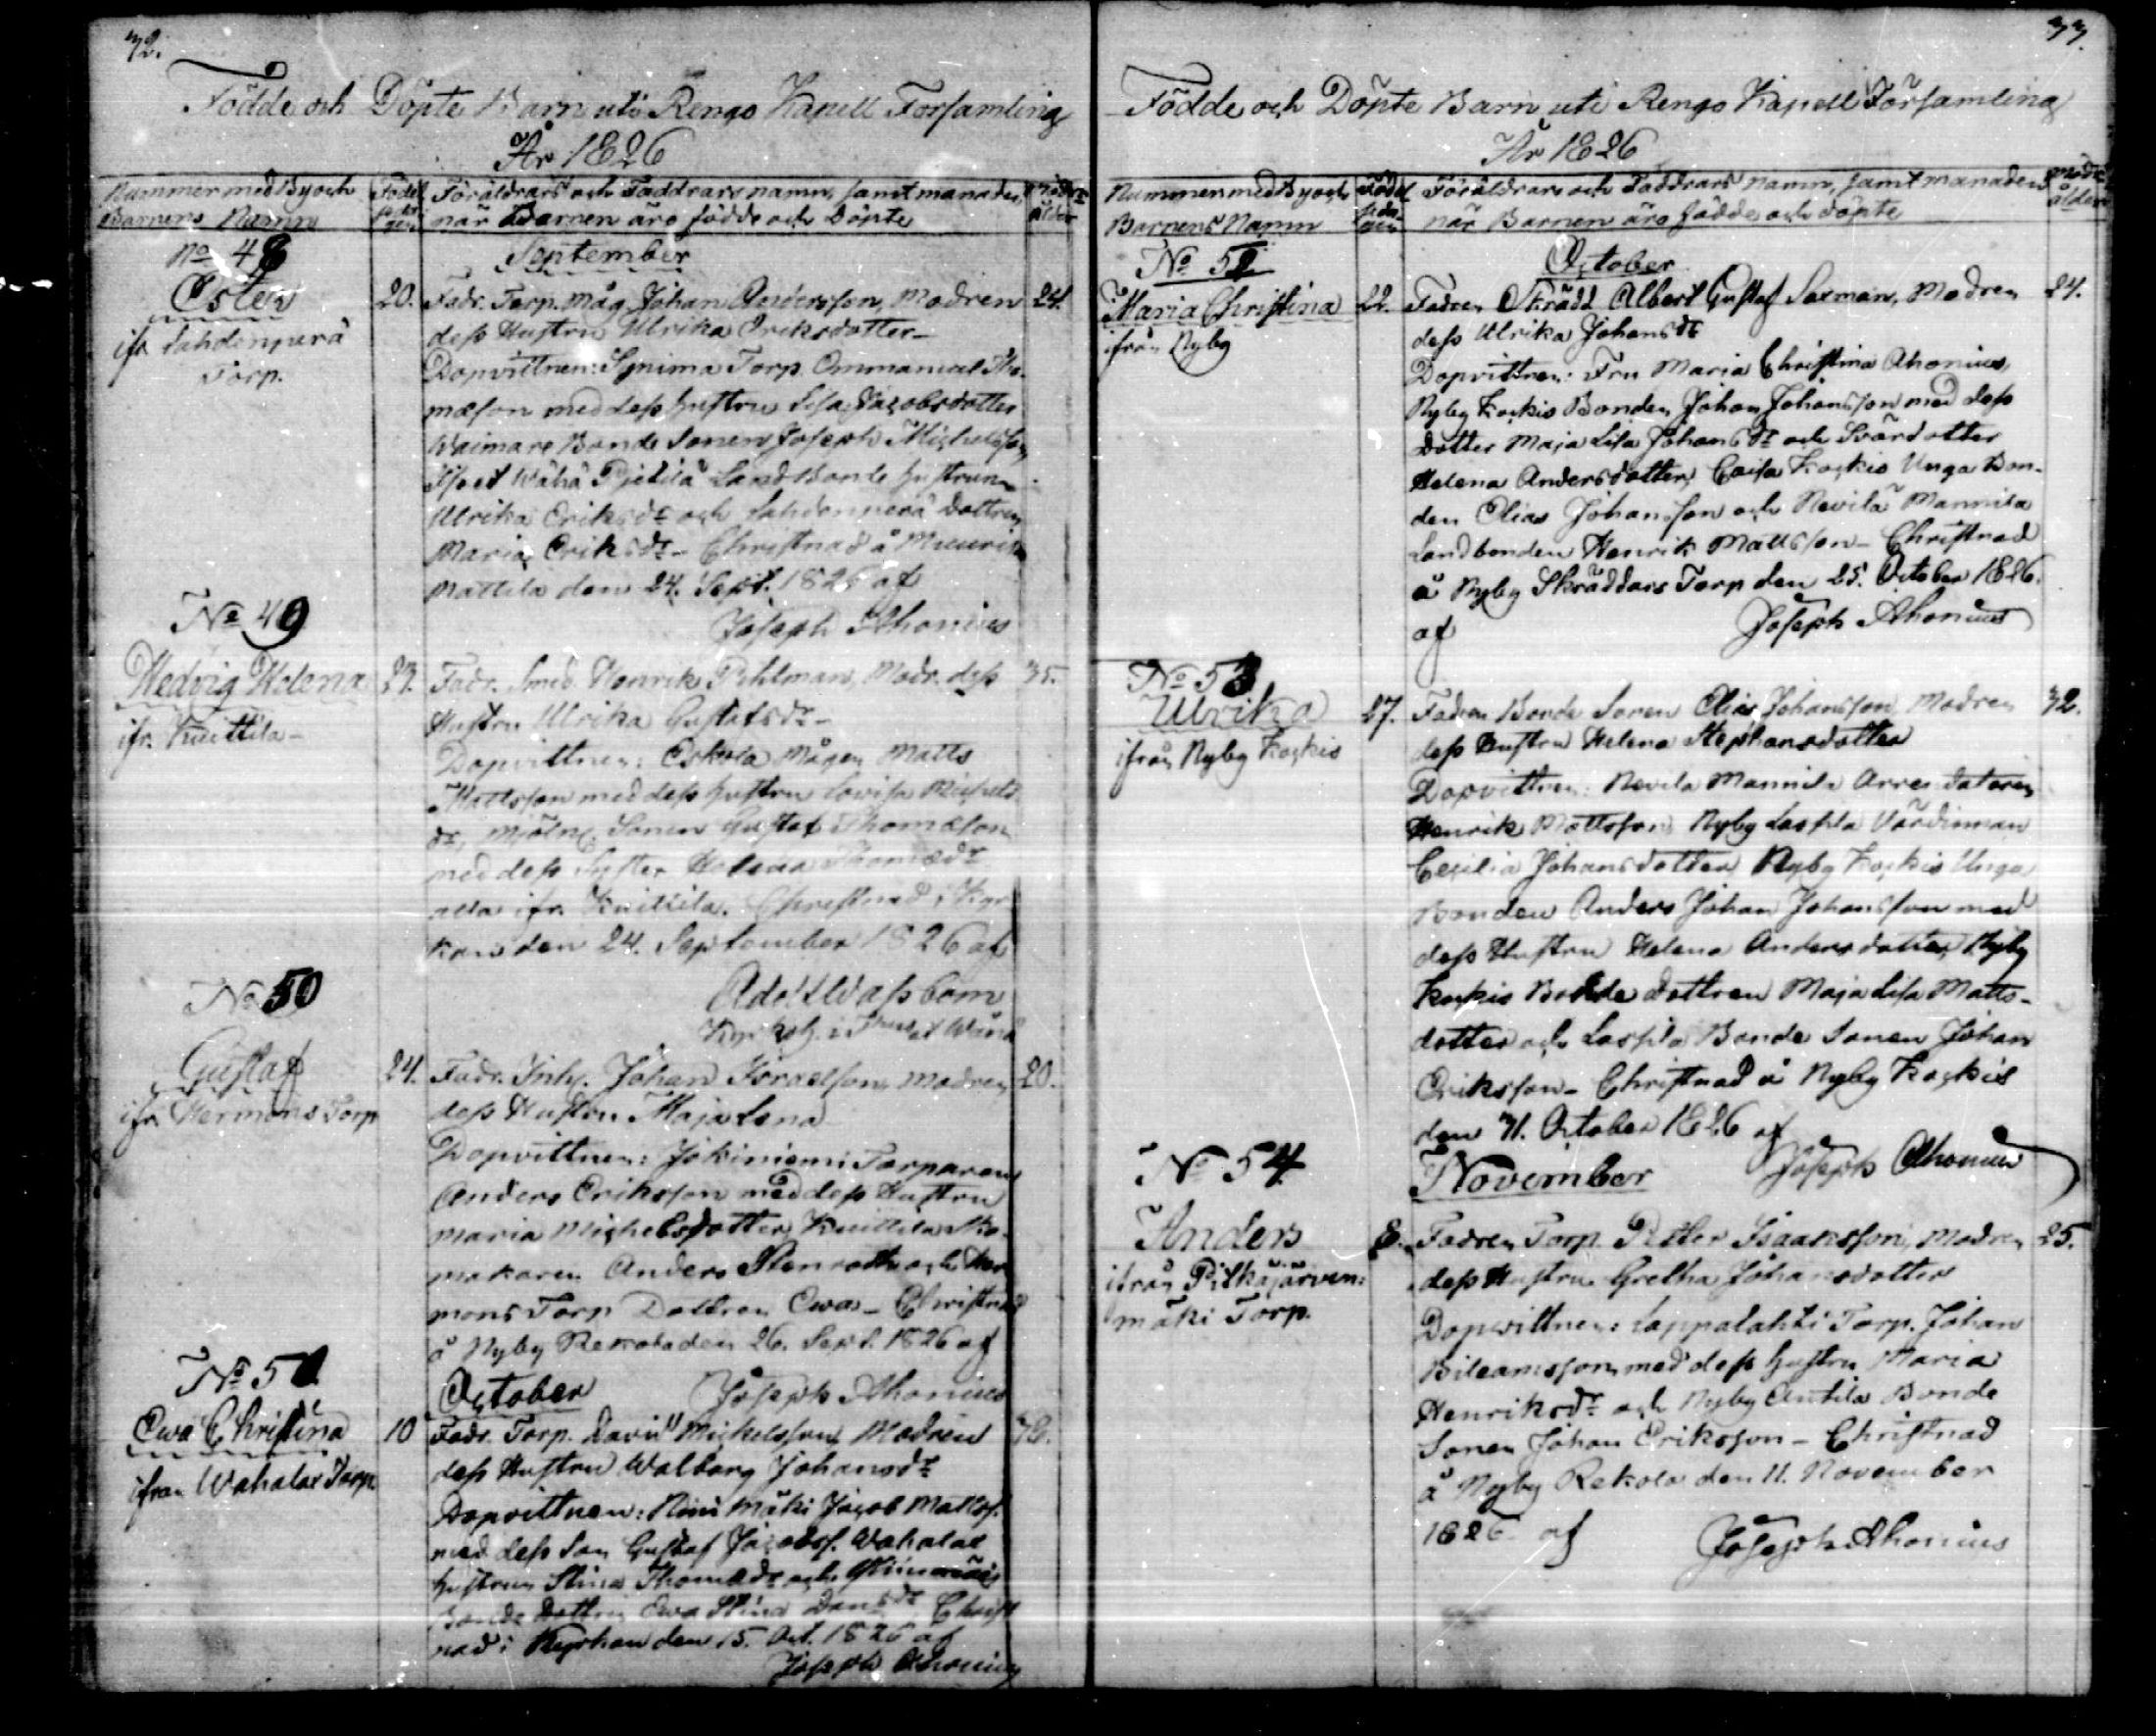 32.
Födde och Döpte Barn uti Rengo Kapell Församling
År 1826
Nummer med By och
Barnens Namn
Födel
seda
gen
Föräldrars och Faddrars namn, samt månaden
när Barnen äro födde och Döpte
Modr:s
ålder
No 48
September
Ester
ifr Lahdenperä
Torp.
20.
Fadr. Torp. måg Johan Andersson, Modren
dess Hustru Ulrika Eriksdotter
Dopvittnen: Torp. Emmanuel Tho-
masson med dess hustru Lisa Jacobsdotter
Bonde Sonen Joseph Michelsson
Wähä Pietilä Landbonde hustrun
Ulrika Eriksdr och Lahdenperä Dottren
Maria Eriksdr – Christnad å
Mattila den 24. Sept. 1826 af
Joseph Ahonius
24.
No 49
Hedvig Helena
ifr. Knuttila –
23.
Fadr. Smed. Henrik Pihlman, Modr. dess
Hustru Ulrika Gustafsdr –
Dopvittnen: Eskola Mågen Matts
Mattsson med dess hustru Lovisa Michels
dr, Mjöln. Sonen Gustaf Thomasson
med dess Syster Helena Thomasdr
alla ifr. Knuttila. Christnad i Kyr-
kan den 24. September 1826 af
Adolf Wassbom
35.
No 50
Gustaf
ifr Hermons Torp
24.
Fadr. Inh. Johan Israelsson, Modren
dess Hustru Maja Lena
Dopvittnen: Jokiniemi Torparen
Anders Eriksson med dess Hustru
Maria Michelsdotter, Knuttila Sko-
makaren Anders Stenroth och Her
mons Torp Dottren Ewa – Christnad
å Nyby Rekola den 26. Sept. 1826 af
October Joseph Ahonius
20.
No 51
Ewa Christina
ifrån Wahalax Torp
10
Fadr. Torp. David Michelsson, Modren
dess Hustru Walborg Johansdr
Dopvittnen: Nini mäki Jacob Mattss.
med dess Son Gustaf Jacobss. Wahalax
hustrun Stina Thomasdr och
Bonde Dottren Ewa Stina Christ
nad i Kyrkan den 15. Oct. 1826 af
Joseph Ahonius
33.
Födde och Döpte Barn uti Rengo Kapell Församling
År 1826
Nummer med By och
Barnens Namn
Födel
seda-
gen
Föräldrars och Faddrars namn, samt månaden
när Barnen äro födde och döpte
Modr:s
ålder
No 52
October
Maria Christina
ifrån Nyby
22.
Fadren Skrädd. Albert Gustaf Saxman, Modren
dess Ulrika Johansdr
Dopvittnen: Fru Maria Christina Ahonius,
Nyby Kockis Bonden Johan Johansson med dess
dotter Maja Lisa Johansdr och Svärdotter
Helena Andersdotter, Kockis Unga Bon-
den Elias Johansson och Nevilä Mannila
Landbonden Henrik Mattsson – Christnad
å Nyby Skräddars Torp den 25. October 1826.
af Joseph Ahonius
24.
No 53
Ulrika
ifrån Nyby Kockis
27.
Fadren Bonde Sonen Elias Johansson, Modren
dess Hustru Helena Stephansdotter
Dopvittnen: Nevila Mannila Arrendatoren
Henrik Mattsson, Nyby Laspila Värdinnan
Cecilia Johansdotter, Nyby Kockis Unga
Bonden Anders Johan Johansson med
dess Hustru Helena Andersdotter, Nyby
Kockis Bonde dottren Maja Lisa Matts-
dotter och Laspila Bonde Sonen Johan
Eriksson – Christnad å Nyby Kockis
den 31. October 1826 af
32.
November Joseph Ahonius
No 54
Anders
ifrån Pitkäjärven-
mäki Torp.
8.
Fadren Torp. Petter Isaaksson, Modren
dess Hustru Gretha Johansdotter
Dopvittnen: Lappalahti Torp. Johan
Bileamsson med dess hustru Maria
Henriksdr och Nyby Antila Bonde
Sonen Johan Eriksson – Christnad
å Nyby Rekola den 11. November
1826 af Joseph Ahonius
25.